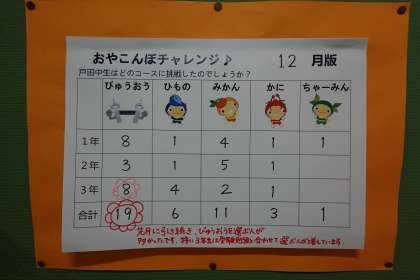 おやこんぼチャレンジ♪ 12 月版
戸田中生はどのコースに挑戦したのでしょうか?
びゅうおう ひもの みかん かに ちゃーみん
1年 8 1 4 1 1
2年 3 1 5 1
3年 8 4 2 1
合計 19 6 11 3 1
先月に引き続き、びゅうおうを選ぶ人が
多かったです。特に3年生は受験勉強と合わせて選ぶ人が増えています。